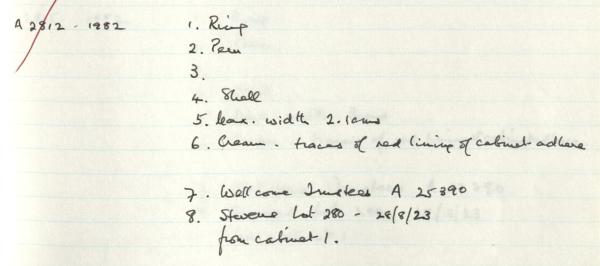 A 2812 - 1982 1. Ring
2. Peru
3.
4. Shell
5. Max. width 2.1cms
6. Cream. traces of red lining of cabinet adhere
7. Wellcome Trustees A 25390
8. Stevens Lot 280 - 28/8/23
from cabinet 1.